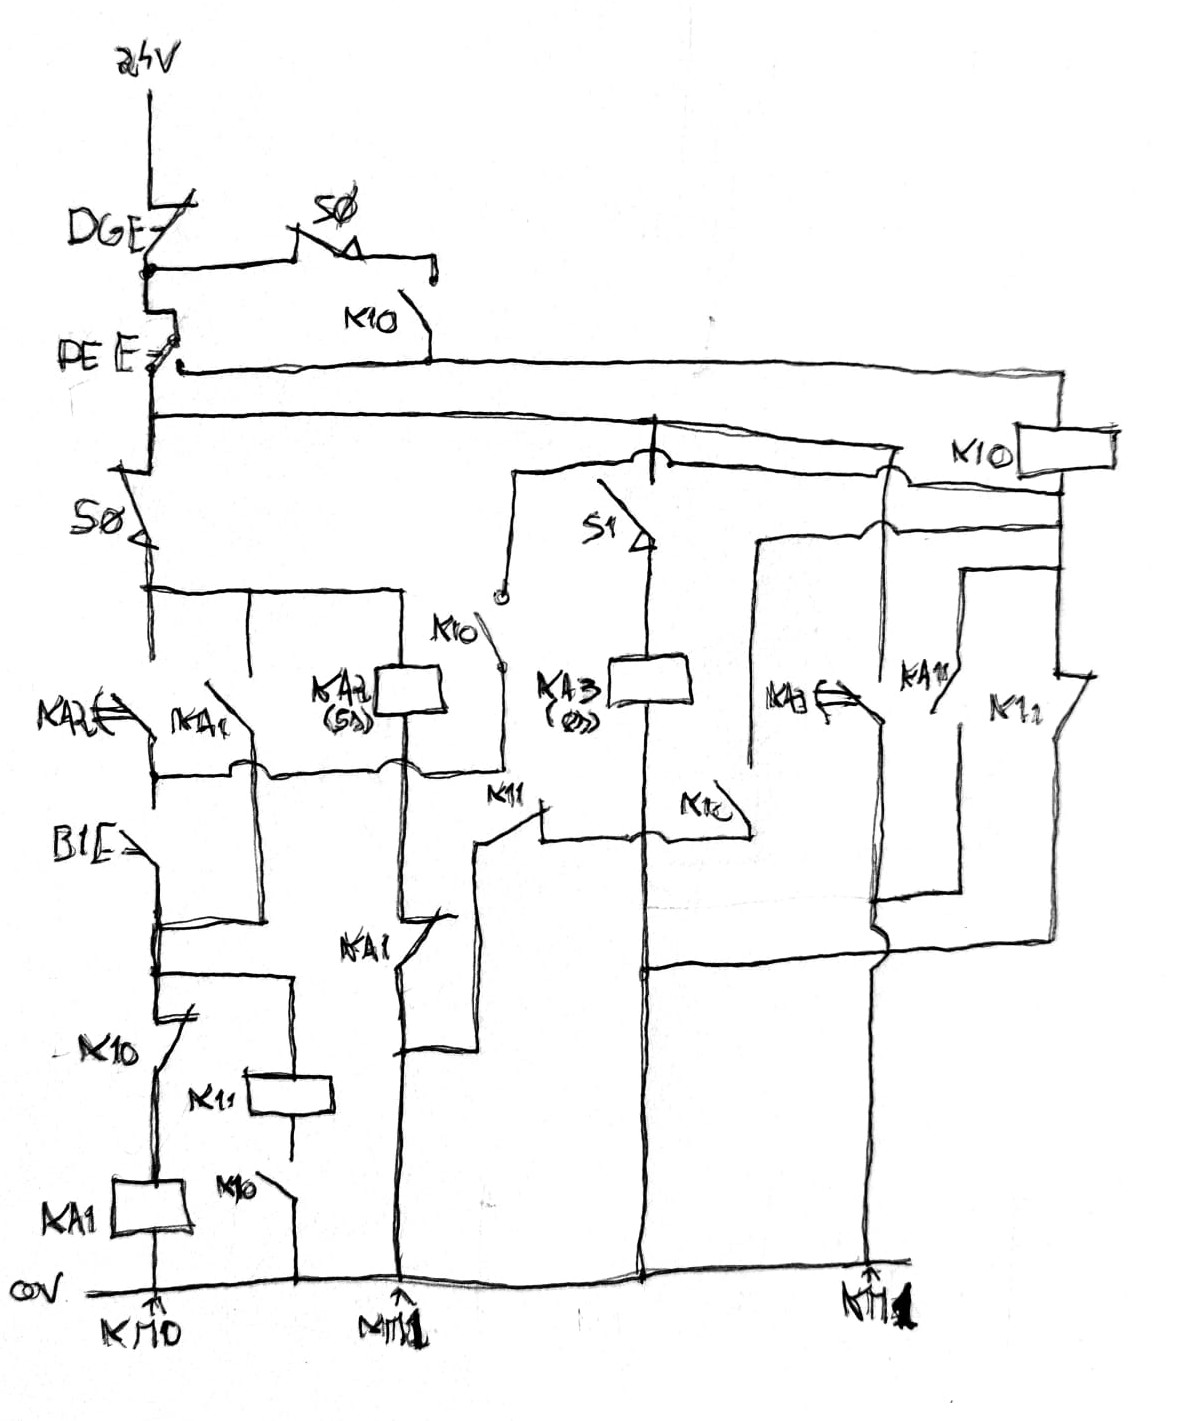 24V
DGE
SØ
K10
PE E
K10
SØ
S1
K10
KA2
KA1
KA2
(5s)
KA3
KA3
KA11
K11
K11
B1E
KA1
K10
K11
K10
KA1
00V
KM0
KM1
KM1